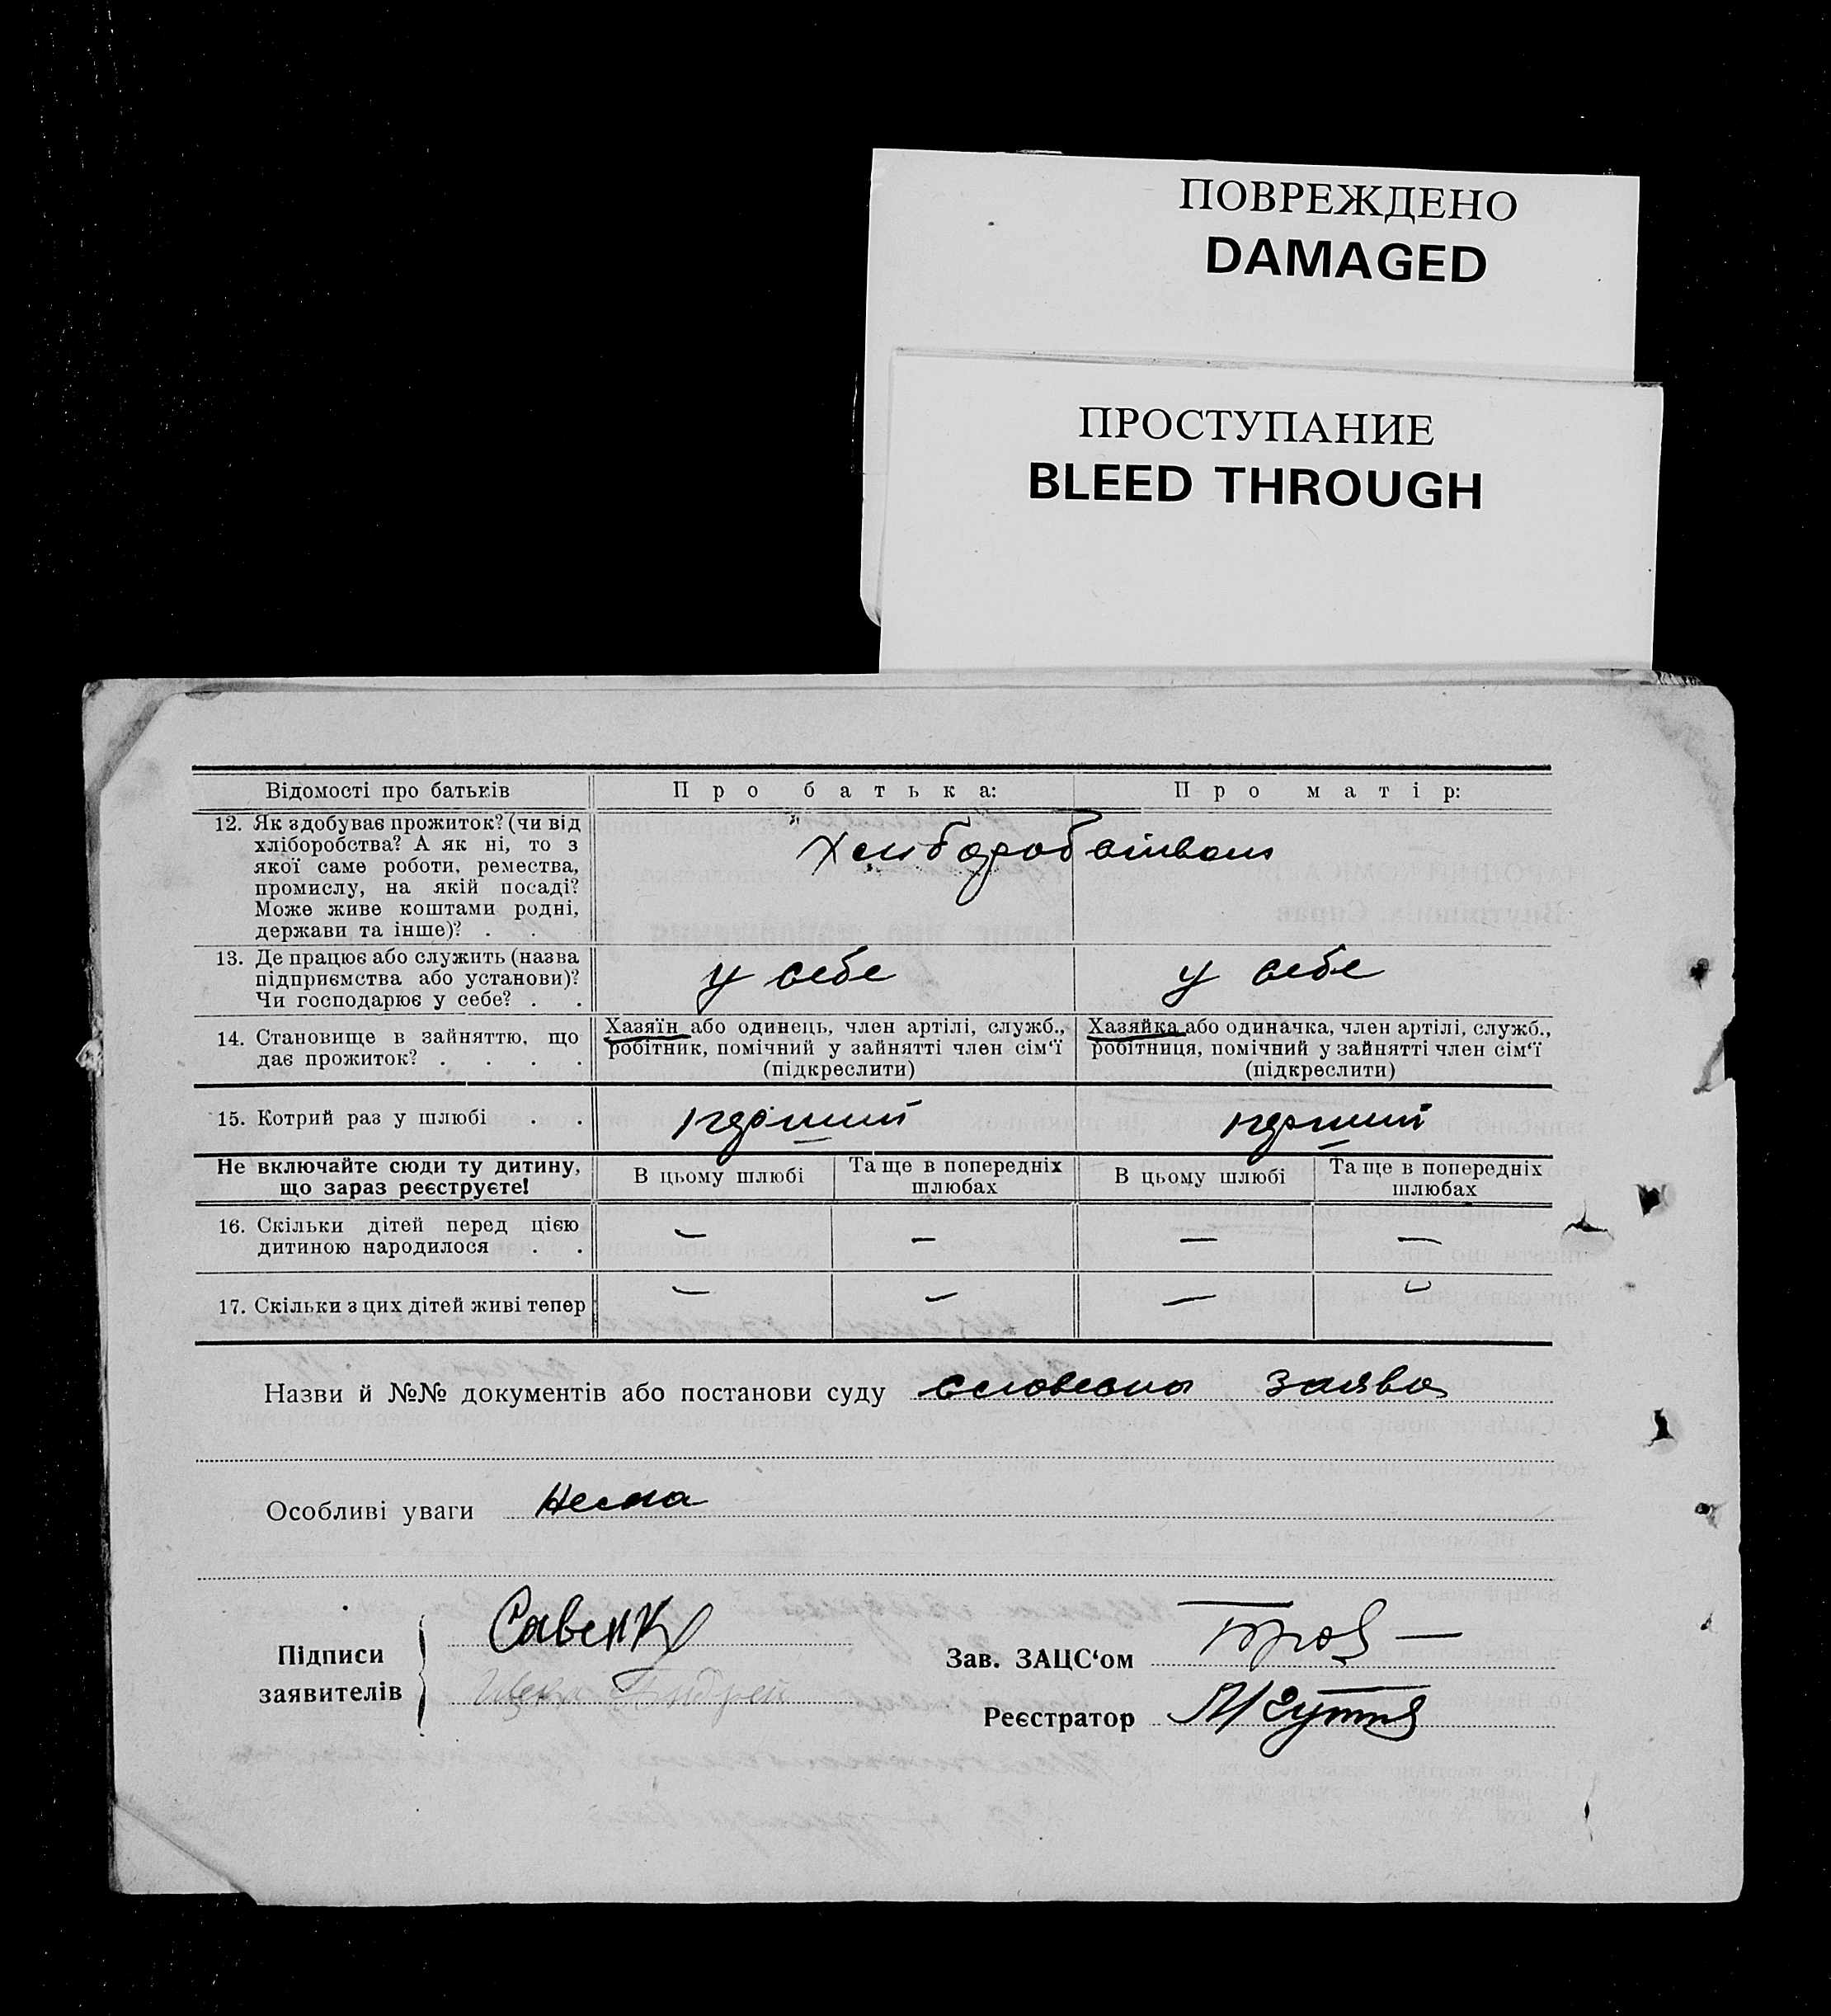 ПОВРЕЖДЕНО
DAMAGED
ПРОСТУПАНИЕ
BLEED THROUGH
Відомості про батьків Про батька: Про матір:
12. Як здобуває прожиток? (чи від
хліборобства? А як ні, то з
якої саме роботи, ремества,
промислу, на якій посаді?
Може живе коштами родні,
держави та інше)? . .
13. Де працює або служить (назва
підприємства або установи)?
Чи господарює у себе? . .
у себе у себе
14. Становище в зайняттю, що
дає прожиток? . . . .
Хазяїн або одинець, член артілі, служб.,
робітник, помічний у зайнятті член сім‘ї
(підкреслити)
Хазяйка або одиначка, член артілі, служб.,
робітниця, помічний у зайнятті член сім‘ї
(підкреслити)
15. Котрий раз у шлюбі . . перший перший
Не включайте сюди ту дитину,
що зараз реєструєте!
В цьому шлюбі
Та ще в попередніх
шлюбах
В цьому шлюбі
Та ще в попередніх
шлюбах
16. Скільки дітей перед цією
дитиною народилося . .
— — — —
17. Скільки з цих дітей живі тепер — — — —
Назви й №№ документів або постанови суду словесна заява
Особливі уваги Нема
Підписи
заявителів
Савенко
Зав. ЗАЦС‘ом
Реєстратор